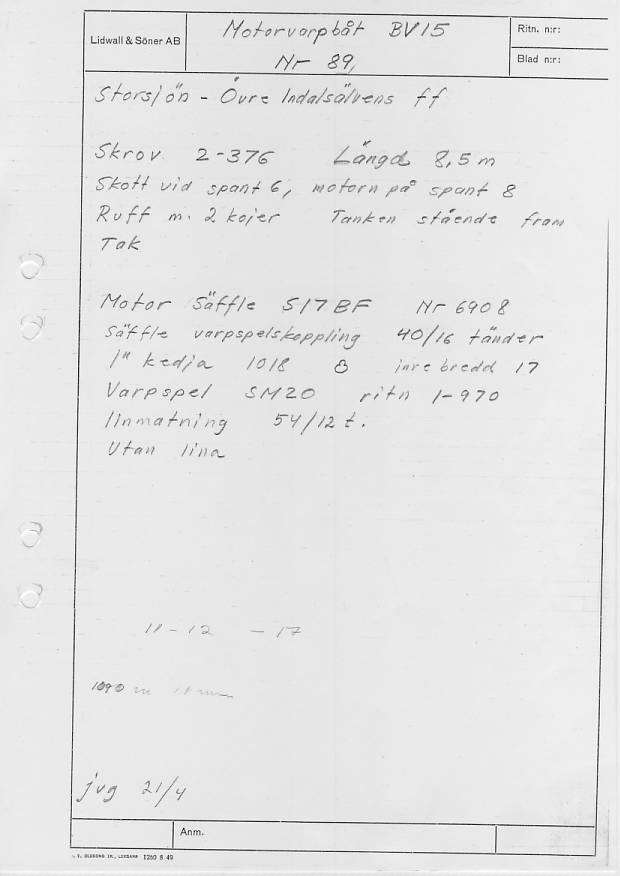 Lidwall & Söner AB
Motorvarpbåt BV15
Nr 89,
Ritn. n:r:
Blad n:r:
Storsjön - Övre Indalsälvens ff
Skrov 2-376 Längd 8,5 m
Skott vid spant 6, motorn på spant 8
Ruff m. 2 kojer Tanken stående fram
Tak
Motor Säffle S17BF Nr 6908
Säffle varpspelskoppling 40/16 tänder
1" kedja 1018 inre bredd 17
Varpspel SM20 ritn 1-970
linmatning 54/12 t.
Utan lina
10-12 -17
1090 m
jvg 21/4
Anm.
1260 8 49